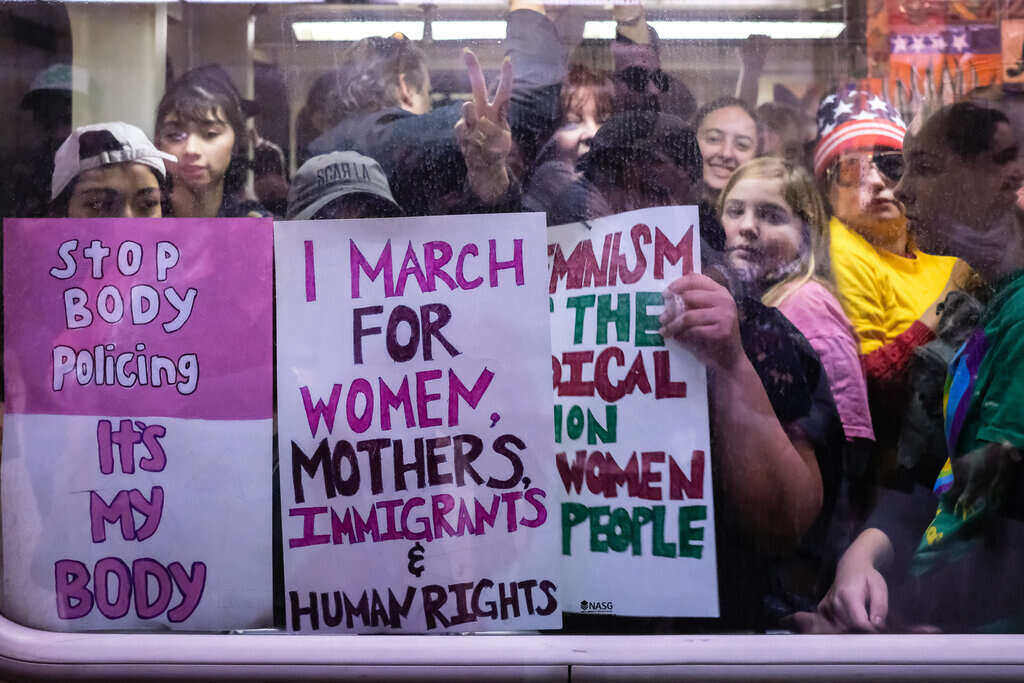 SCAR LA
STOP
BODY
Policing
IT'S
MY
BODY
I MARCH
FOR
WOMEN,
MOTHERS,
IMMIGRANTS
&
HUMAN RIGHTS
MNISM
THE
DICAL
ION
WOMEN
PEOPLE
NASG